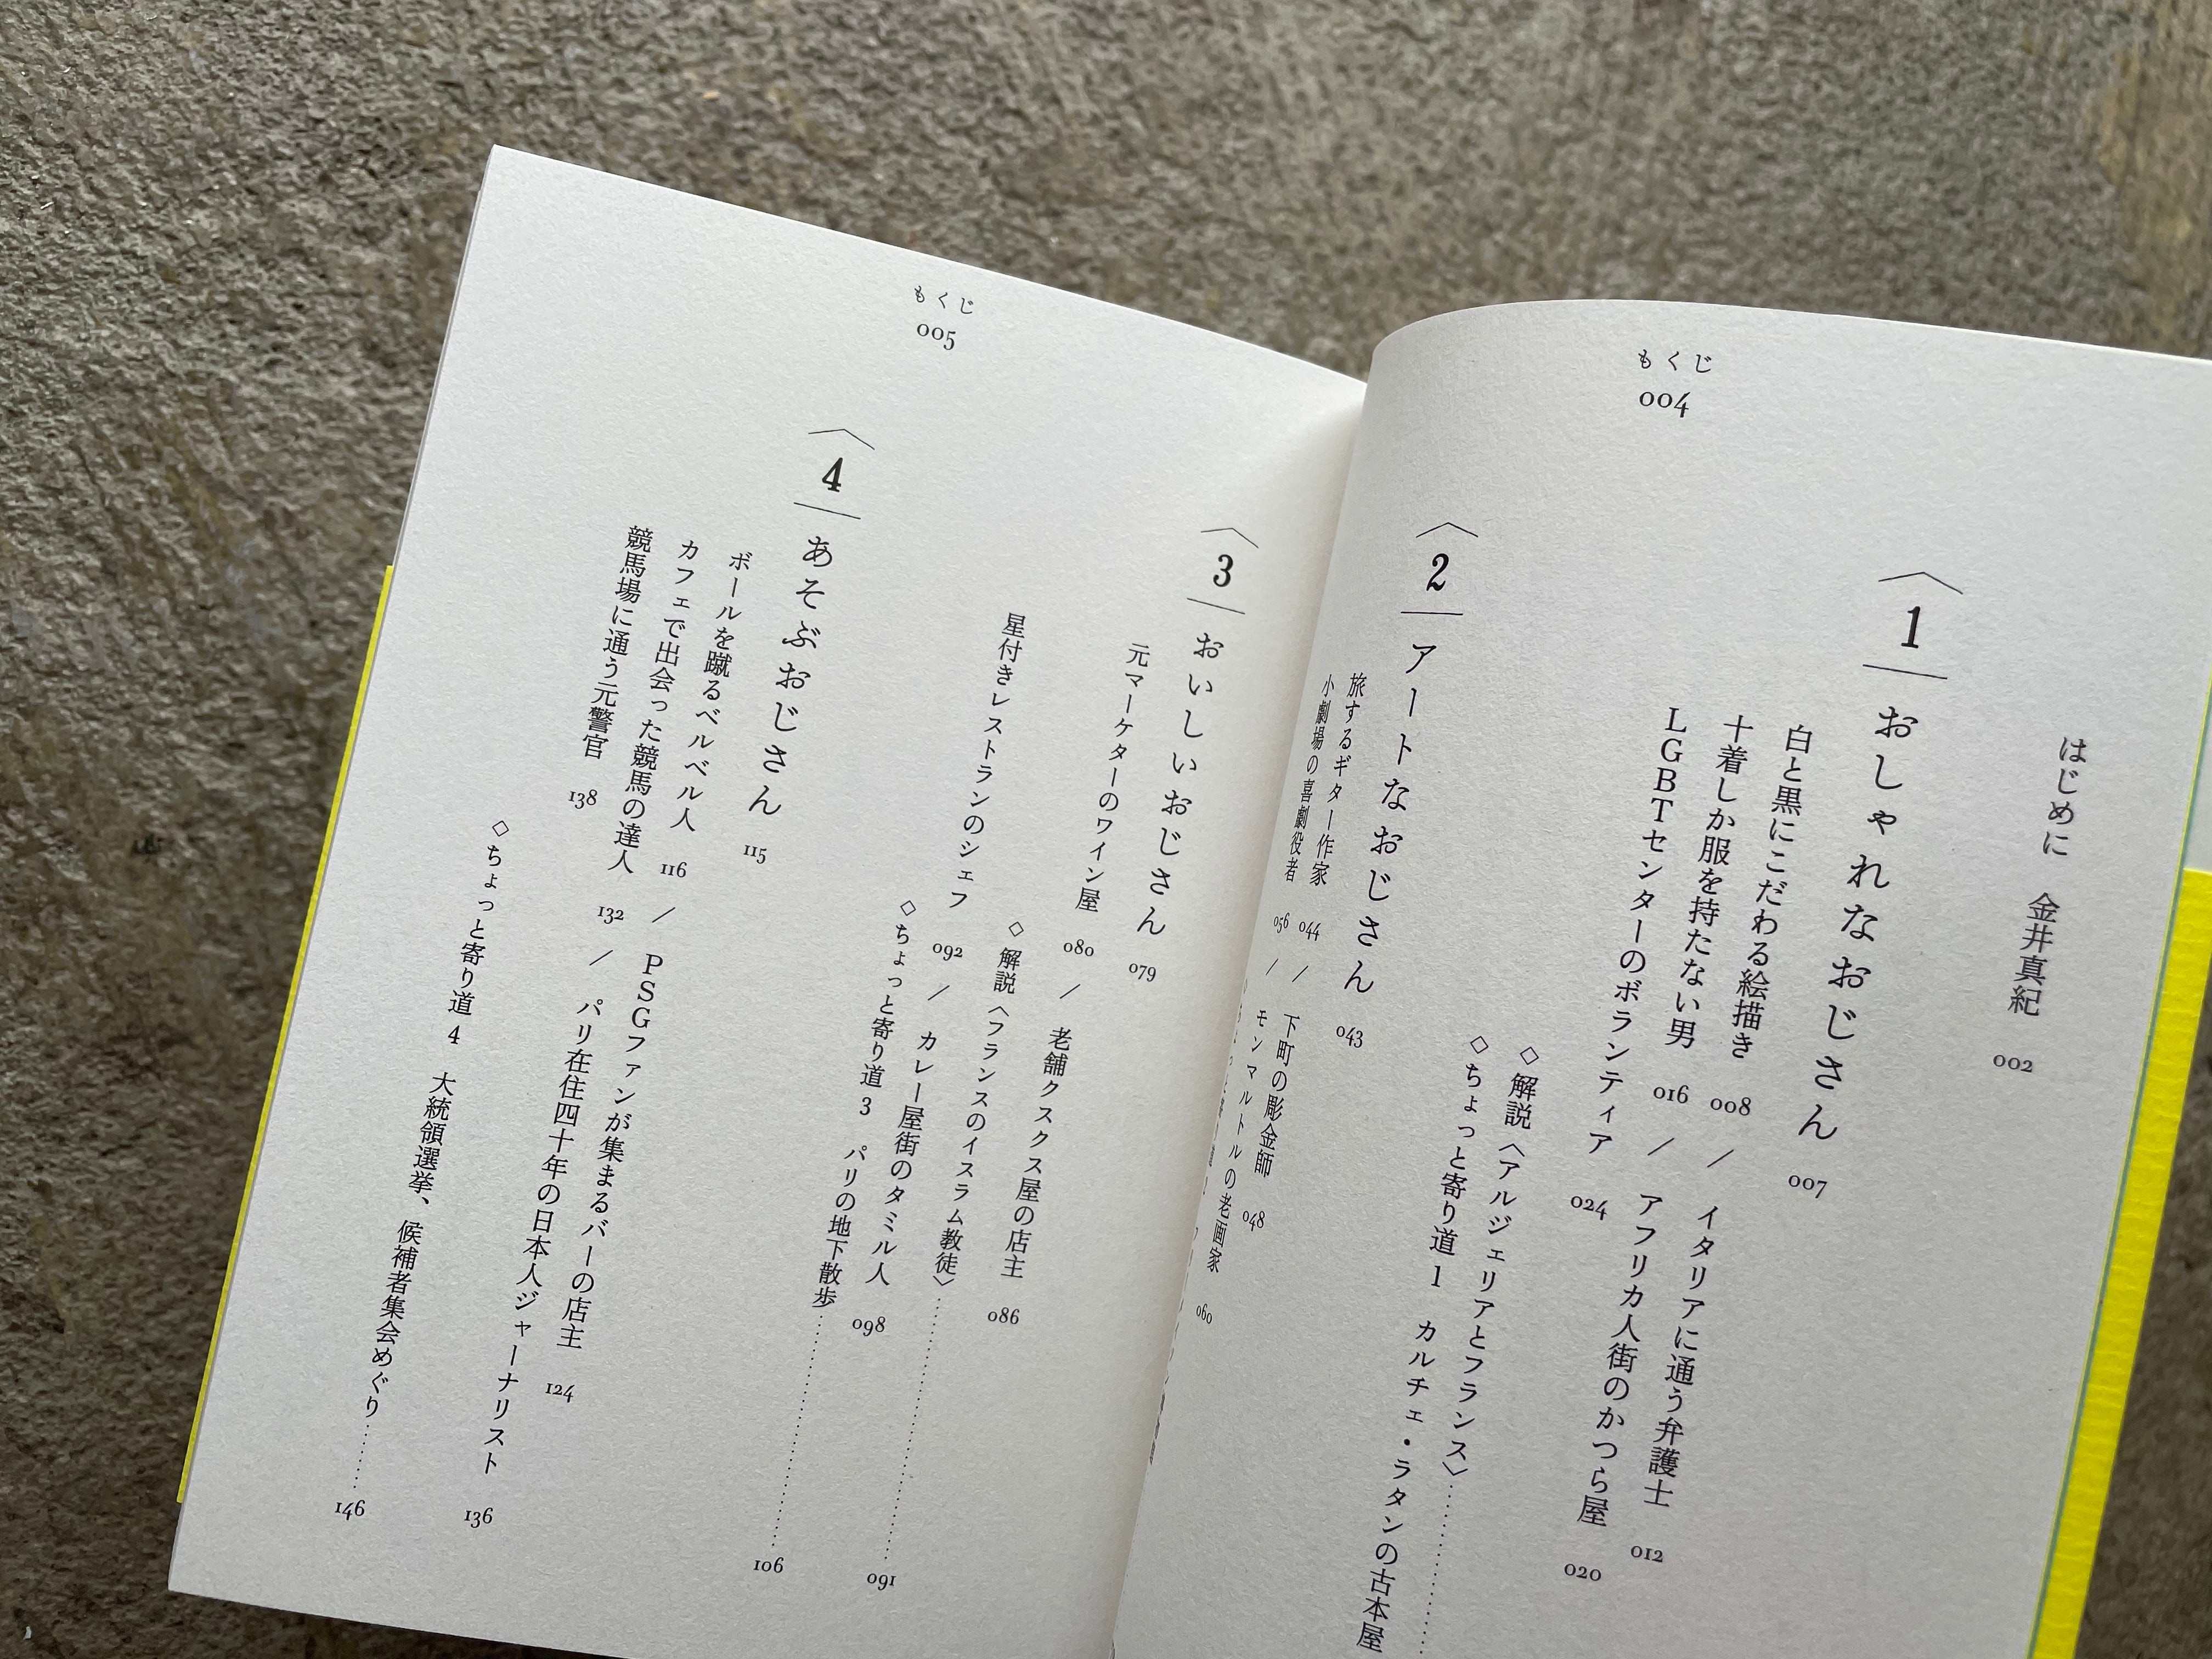 もくじ
004
はじめに 金井真紀 002
1 おしゃれなおじさん 007
白と黒にこだわる絵描き 008 / イタリアに通う弁護士 012
十着しか服を持たない男 016 / アフリカ人街のかつら屋 020
LGBTセンターのボランティア 024
◇解説〈アルジェリアとフランス〉
◇ちょっと寄り道1 カルチェ・ラタンの古本屋
2 アートなおじさん 043
旅するギター作家 044 / 下町の彫金師 048
小劇場の喜劇役者 056 / モンマルトルの老画家 060
もくじ
005
3 おいしいおじさん 079
元マーケターのワイン屋 080 / 老舗クスクス屋の店主 086
◇解説〈フランスのイスラム教徒〉 091
星付きレストランのシェフ 092 / カレー屋街のタミル人 098
◇ちょっと寄り道3 パリの地下散歩 106
4 あそぶおじさん 115
ボールを蹴るベルベル人 116 / PSGファンが集まるバーの店主 124
カフェで出会った競馬の達人 132 / パリ在住四十年の日本人ジャーナリスト 136
競馬場に通う元警官 138
◇ちょっと寄り道4 大統領選挙、候補者集会めぐり 146